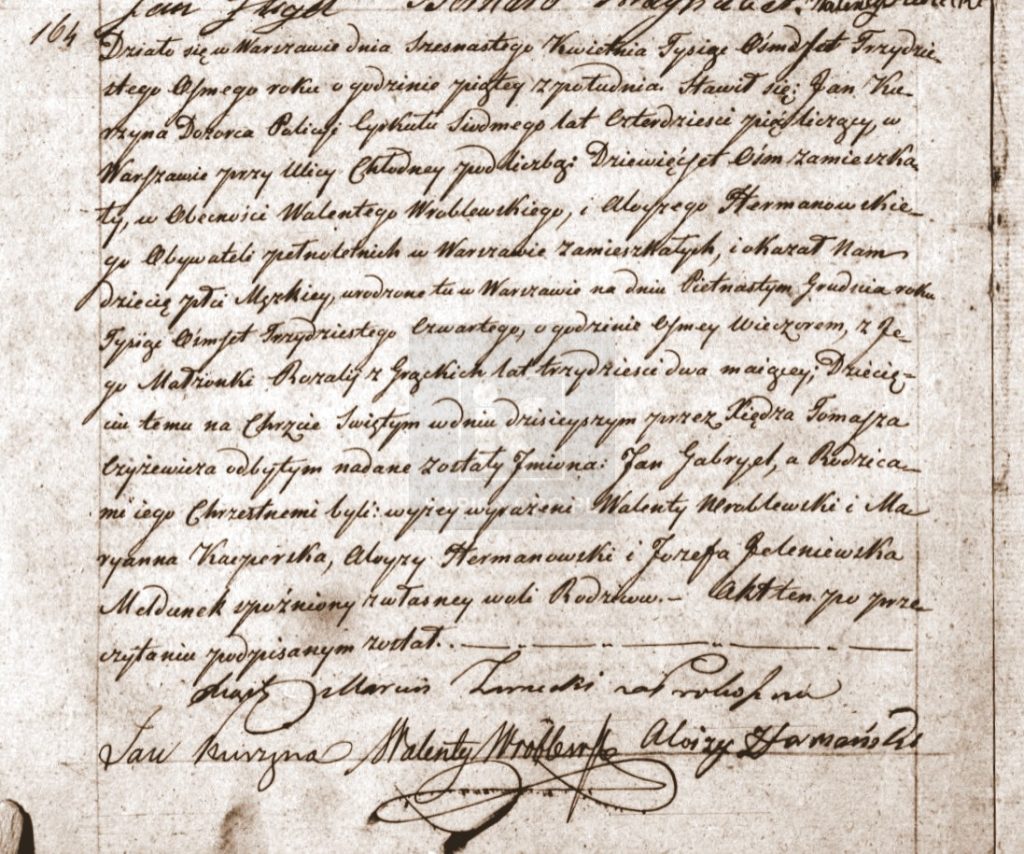 Jan
164 Działo się w Warszawie dnia Szesnastego Kwietnia Tysiąc Ośmdset Trzydzie-
stego Osmego roku o godzinie piątey z południa. Stawił się: Jan Ku-
rzyna Dozorca Policyi Cyrkułu Siodmego lat Czterdziesci pięć liczący, w
Warszawie przy Ulicy Chłodney pod liczbą: Dziewięćset Ośm zamieszka-
ły, w Obecności Walentego Wroblewskiego, i Aloyzego Hermanowskie-
go Obywateli pełnoletnich w Warszawie zamieszkałych, i okazał Nam
dziecię płci Męzkiey, urodzone tu w Warszawie na dniu Piętnastym Grudnia roku
Tysiąc Ośmset Trzydziestego Czwartego, o godzinie Osmey Wieczorem, z Je-
go Małżonki Rozalij z Grąckich lat trzydziesci dwa maiącey; Dziecię-
ciu temu na Chrzcie Swiętym w dniu dzisieyszym przez Xiędza Tomasza
Czyżewicza odbytym nadane zostały Jmiona: Jan Gabryel, a Rodzica-
mi iego Chrzestnemi byli: wyżey wyrażeni Walenty Wroblewski i Ma-
ryanna Kacperska, Aloyzy Hermanowski i Jozefa Jeleniewska
Meldunek spoźniony z własney woli Rodzicow. – Akt ten po prze-
czytaniu podpisanym został.
Xiądz Marcin
Jan Kurzyna Walenty Wróblewski Aloizy Hermański